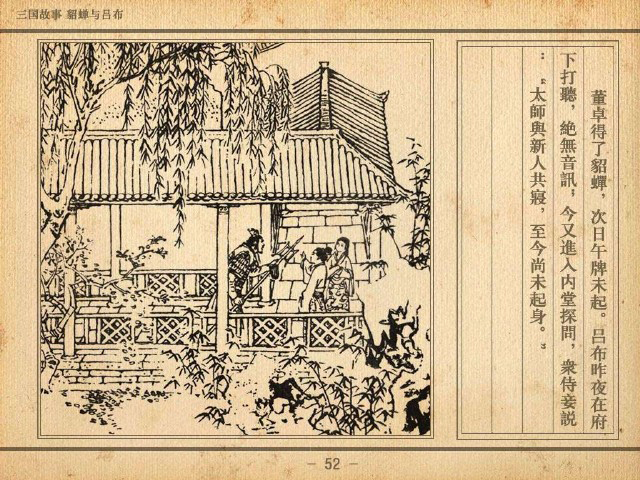 三国故事 貂蟬与吕布
董卓得了貂蟬，次日午牌未起。吕布昨夜在府
下打聽，絶無音訊；今又進入内堂探問，衆侍妾説
：“太師與新人共寢，至今尚未起身。”
- 52 -